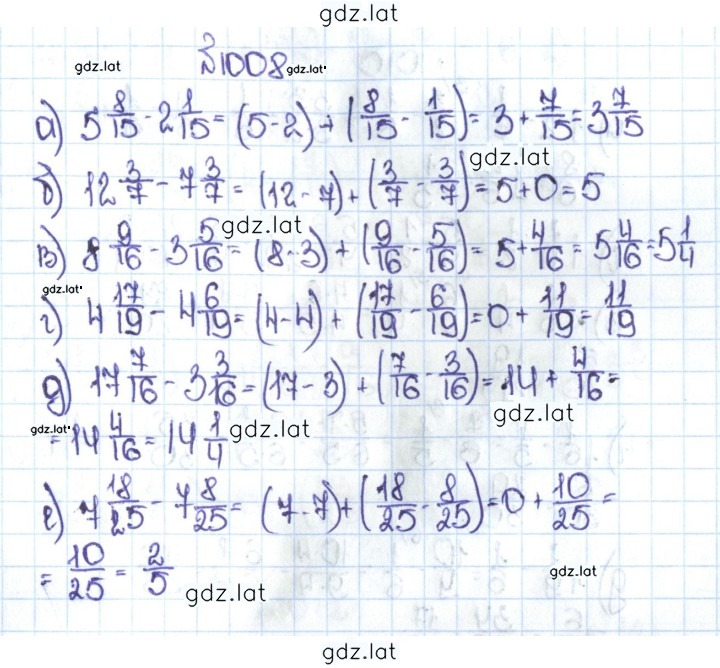 gdz.lat
gdz.lat №1008 gdz.lat
а) 5 8/15 - 2 1/15 = (5-2) + (8/15 - 1/15) = 3 + 7/15 = 3 7/15
gdz.lat
б) 12 3/7 - 7 3/7 = (12-7) + (3/7 - 3/7) = 5+0=5
gdz.lat
в) 8 9/16 - 3 5/16 = (8-3) + (9/16 - 5/16) = 5+4/16 = 5 4/16 = 5 1/4
gdz.lat
г) 4 17/19 - 4 6/19 = (4-4) + (17/19 - 6/19) = 0 + 11/19 = 11/19
д) 17 7/16 - 3 3/16 = (17-3) + (7/16 - 3/16) = 14 + 4/16 =
gdz.lat
gdz.lat = 14 4/16 = 14 1/4 gdz.lat
е) 7 18/25 - 7 8/25 = (7-7) + (18/25 - 8/25) = 0 + 10/25 =
= 10/25 = 2/5
gdz.lat
gdz.lat
gdz.lat